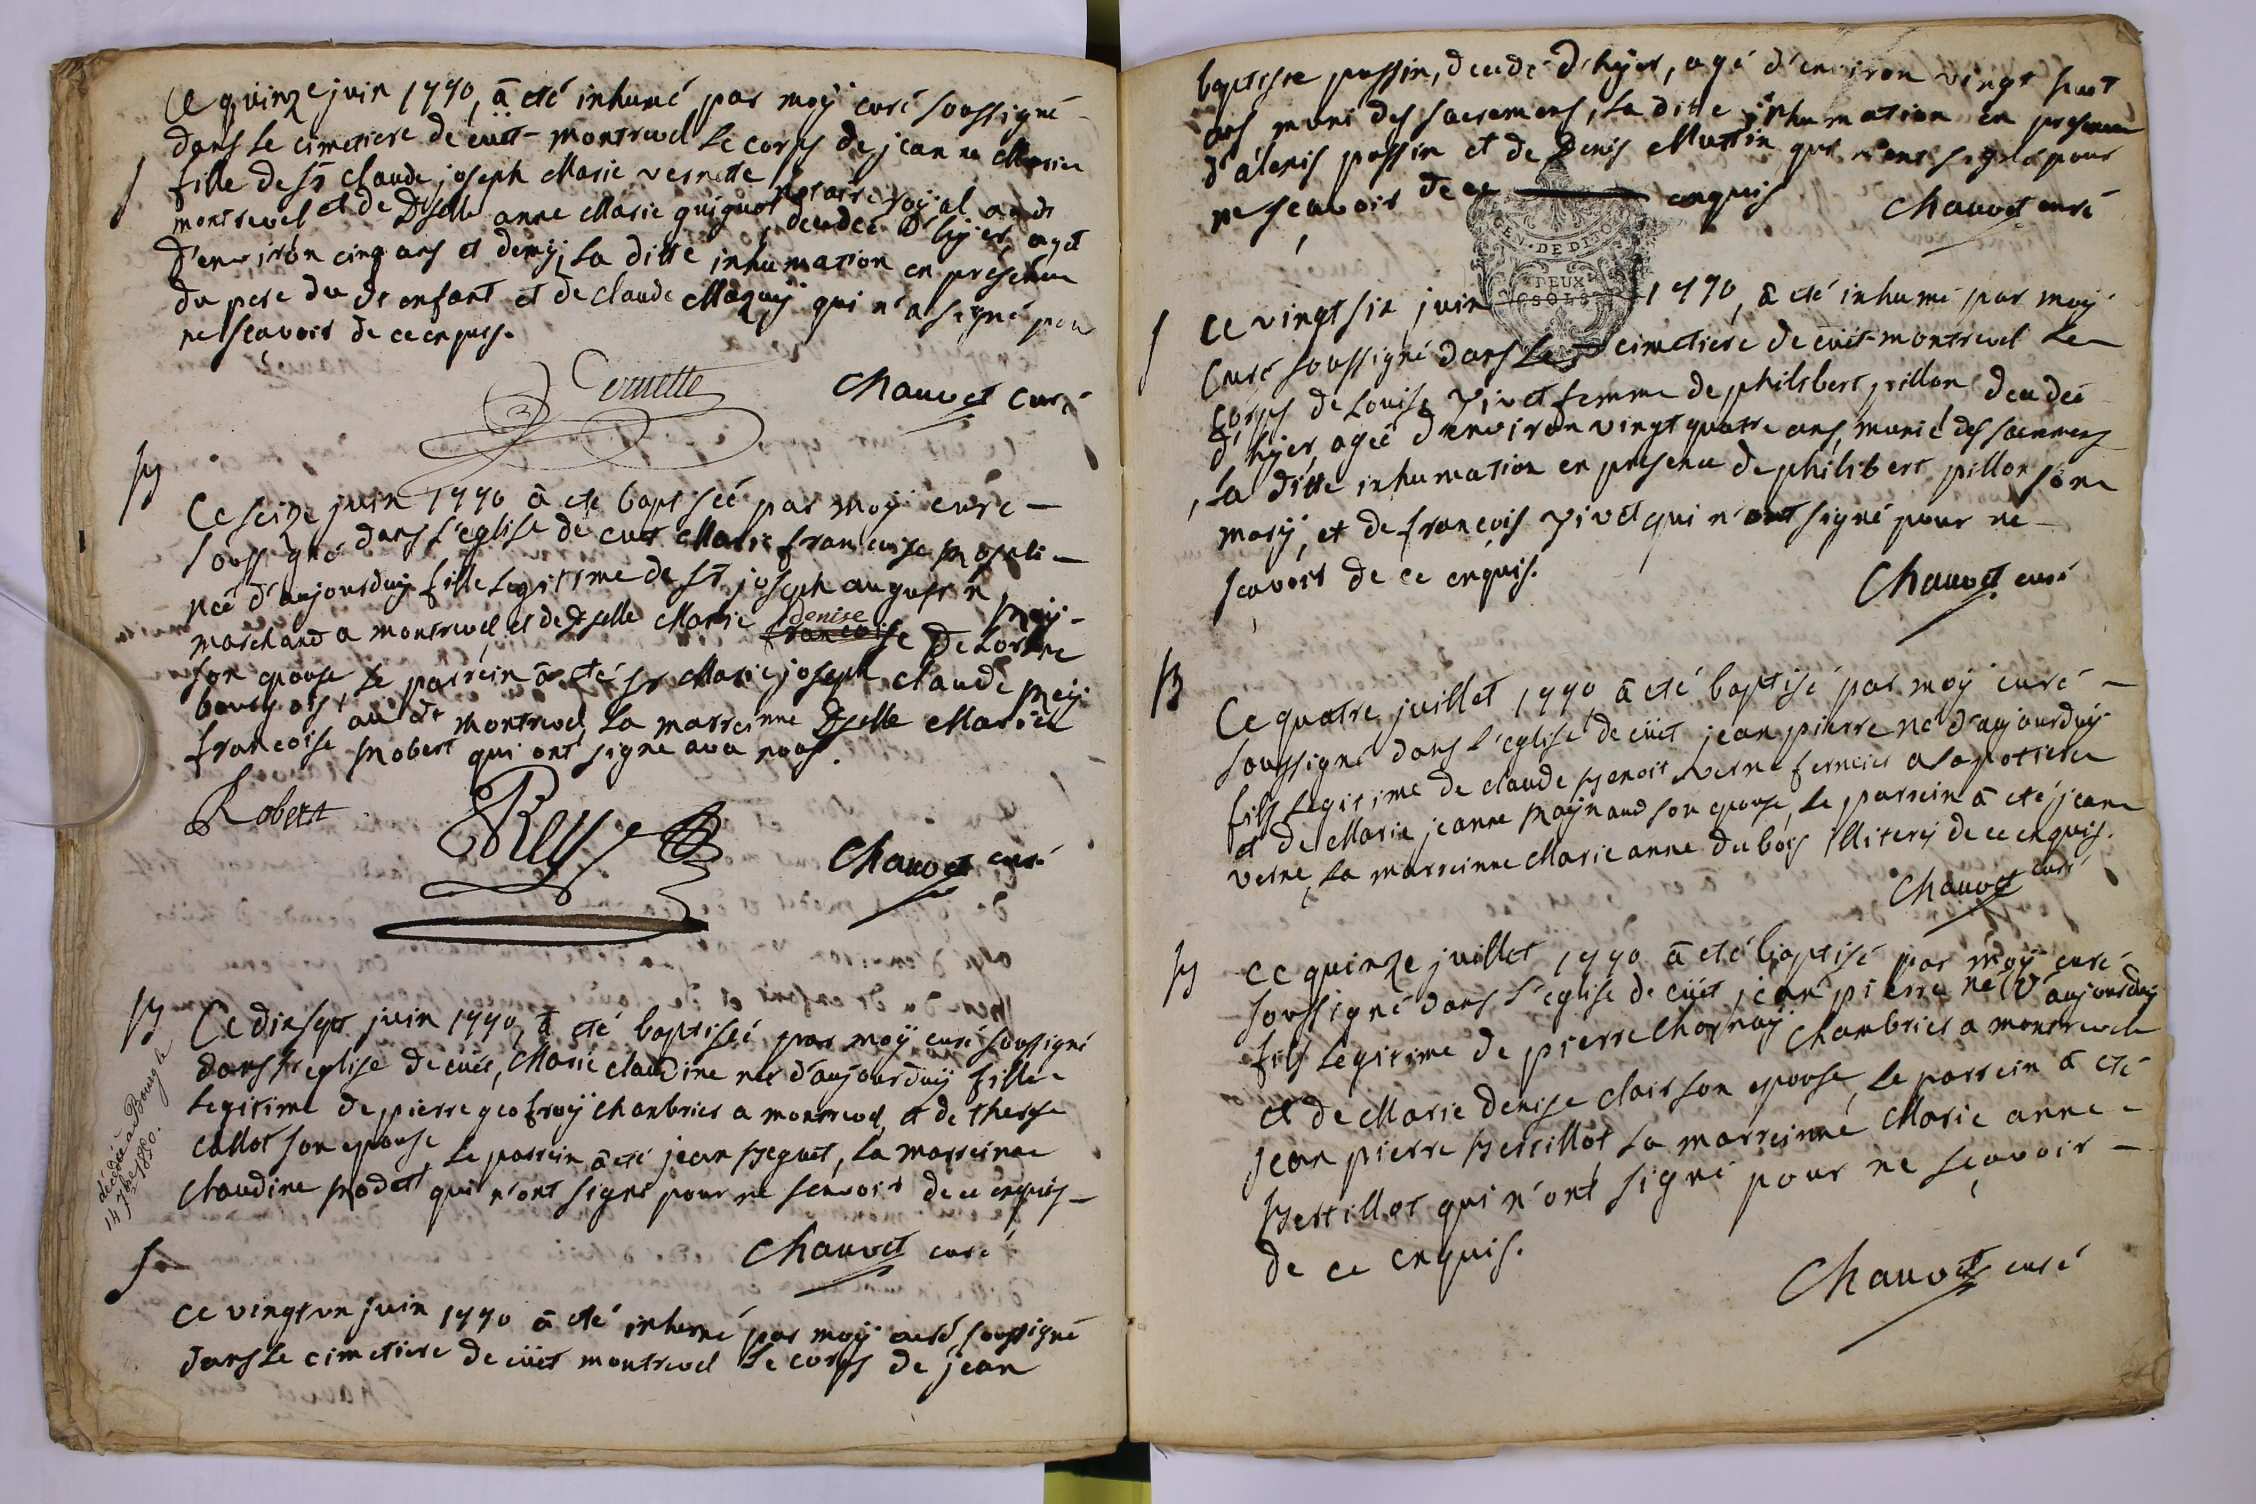 Ce quinze juin 1770, â eté inhumé par moÿ curé soussigné
dans le cimetiere de cüet-montrevel le corps de jeanne Marie
fille de sr claude joseph Marie vernette notaire royal audt
montrevel et de Dselle anne Marie guiguot, decedée d'hÿer, agée
d'environ cinq ans et demÿ, la ditte inhumation en presence
du pere du dt enfant et de claude qui n'a signé pour
ne sçavoir de ce enquis.
Vernette
Chauvet curé
B
Ce seize juin 1770 â eté baptiseé par moÿ curé
soussigné dans l'eglise de cuet Marie francoise
neé d'aujourduÿ fille legitime de sr joseph augustin Reÿ
marchand a montrevel, et de Dselle Marie denise francoise Delorme
son epouse, le parrein â eté sr Marie joseph claude Reÿ
bourgois audt montrevel, la marreinne Dselle Marie
francoise Robert qui ont signé avec nous.
Robert
Rey
Chauvet curé
B
Ce dix sept juin 1770, â eté baptiseé par moÿ curé soussigné
dans l'eglise de cüet, Marie claudine neé d'aujourduÿ fille
legitime de pierre geofroÿ chanbrier a montrevel, et de therese
collot son epouse le parrein â eté jean Beguet, la marreinne
claudine Rodet qui n'ont signé pour ne scavoir de ce enquis
décédée à Bourg le
14 7bre 1850.
Chauvet curé
S
Ce vingt un juin 1770 â eté inhumé par moÿ curé soussigné
dans le cimetiere de cüet montrevel le corps de jean
baptiste possin, decedé d'hÿer, agé d'environ vingt sept
ans muni des sacremens, la ditte inhumation en presence
d'alexis possin et de Denis qui n'ont signé pour
ne sçavoir de ce enquis
Chauvet curé
GEN. DE DIJON
DEUX
SOLS
S
Ce vingt six juin 1770, â eté inhumé par moÿ
Curé soussigné dans le cimetiere de cüet-montrevel le
corps de Louise vivet femme de philibert pillon decedeé
d'hÿer, ageé d'environ vingt quatre ans, munie des sacremens
, la ditte inhumation en presence de philibert pillon son
marÿ, et de françois vivet qui n'ont signé pour ne
scavoir de ce enquis.
Chauvet curé
B
Ce quatre juillet 1770 â eté baptisé par moÿ curé
soussigné dans l'eglise de cüet jean pierre né d'aujourduÿ
fils legitime de claude Benoit verne fermier a la potiere
et de Marie jeanne Raÿnaud son epouse, le parrein â eté jean
verne, la marreinne Marie anne dubois illiterés de ce enquis.
Chauvet curé
B
Ce quinze juillet 1770 â eté baptisé par moÿ curé
soussigné dans l'eglise de cüet jean pierre né d'aujourduÿ
fils legitime de pierre Charnaÿ chanbrier a montrevel
et de Marie denise clair son epouse, le parrein â eté
jean pierre Bertillot la marreinne Marie anne
Bertillot qui n'ont signé pour ne sçavoir
de ce enquis.
Chauvet curé